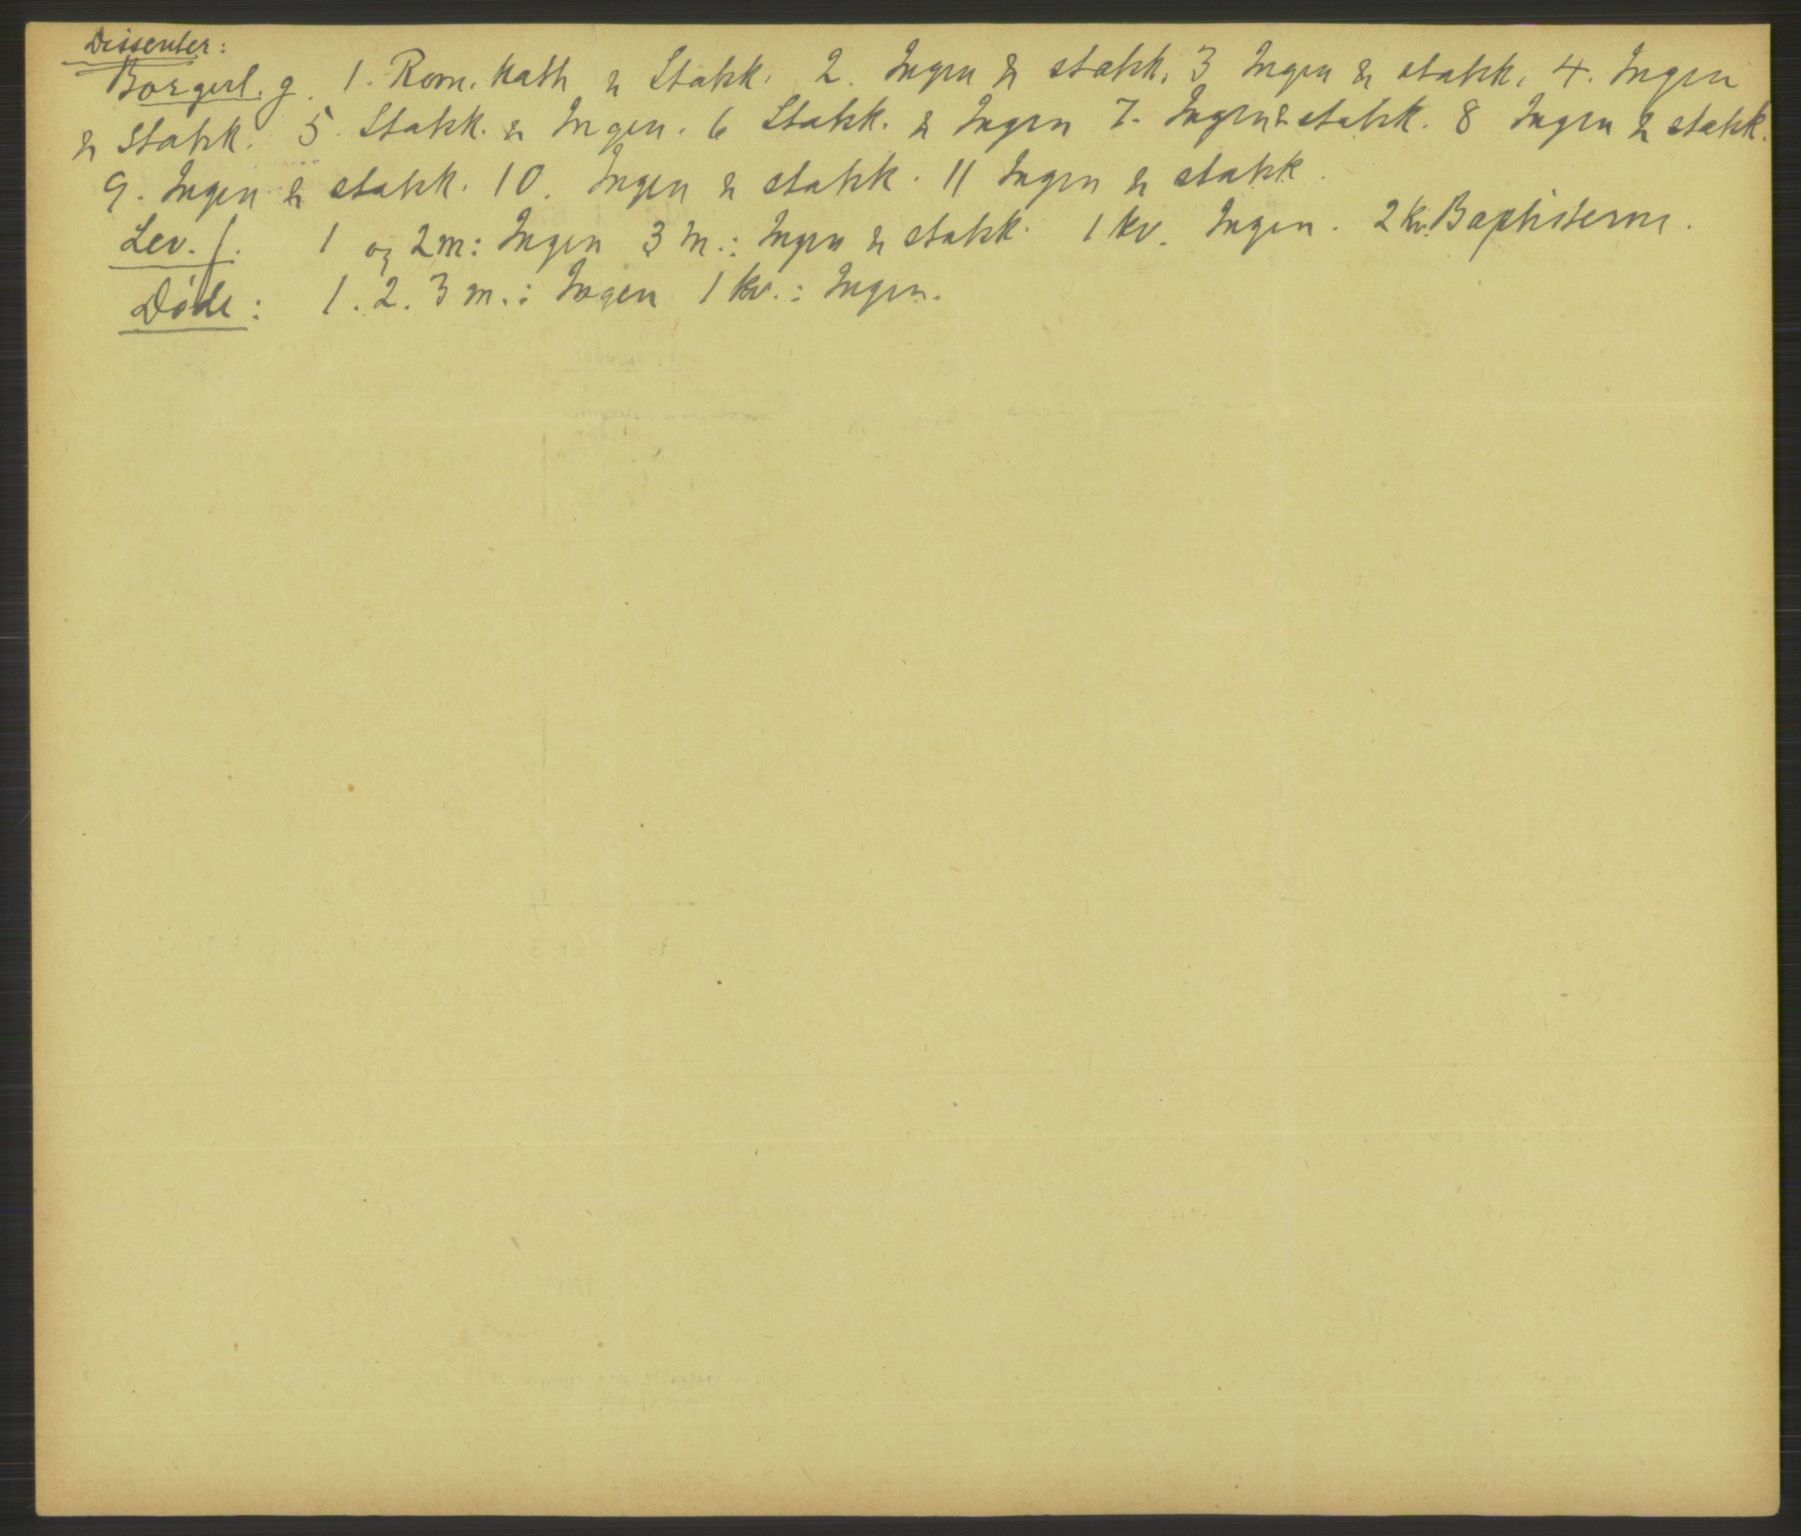 Dissenter:
Borgerl. g. 1. Rom. Kath & Statsk. 2. Ingen & statsk. 3 Ingen & statsk. 4. Ingen
& Statsk. 5. Statsk. & Ingen. 6 Statsk. & Ingen 7. Ingen & statsk. 8 Ingen & statsk.
9. Ingen & statsk. 10. Ingen & statsk. 11 Ingen & statsk.
Lev. f. 1 og 2 m: Ingen 3 m.: Ingen & statsk. 1 kv. Ingen. 2 kv. Baptisterne.
Døde: 1. 2. 3 m.: Ingen 1 kv.: Ingen.